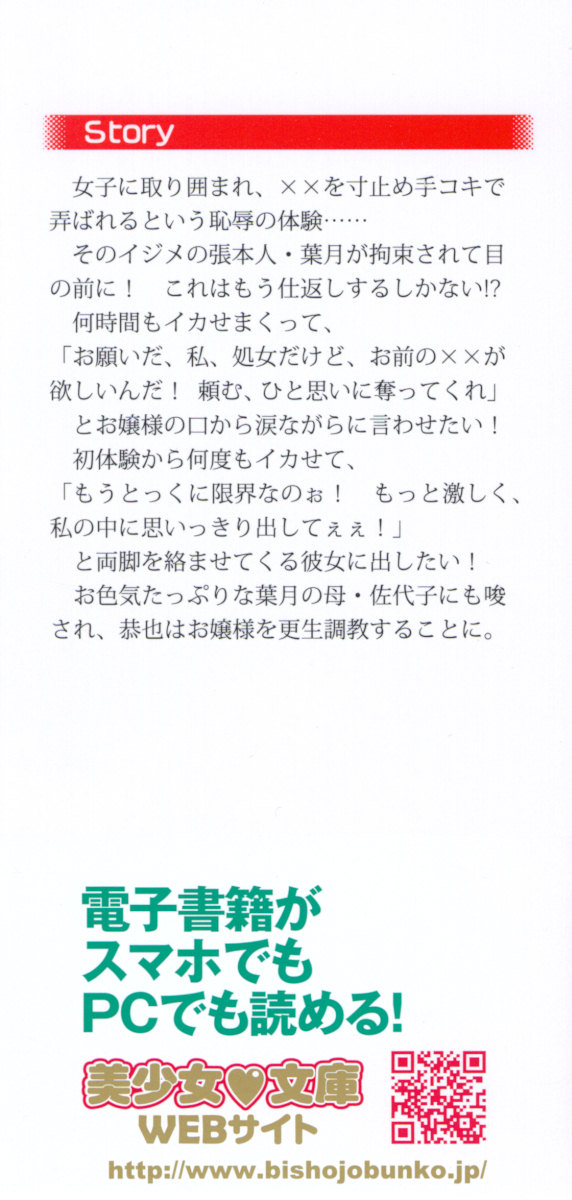 Story
女子に取り囲まれ、××を寸止め手コキで
弄ばれるという恥辱の体験……
そのイジメの張本人・葉月が拘束されて目
の前に！　これはもう仕返しするしかない!?
何時間もイカせまくって、
「お願いだ、私、処女だけど、お前の××が
欲しいんだ！ 頼む、ひと思いに奪ってくれ」
とお嬢様の口から涙ながらに言わせたい！
初体験から何度もイカせて、
「もうとっくに限界なのぉ！　もっと激しく、
私の中に思いっきり出してぇぇ！」
と両脚を絡ませてくる彼女に出したい！
お色気たっぷりな葉月の母・佐代子にも唆
され、恭也はお嬢様を更生調教することに。
電子書籍が
スマホでも
PCでも読める!
美少女♥文庫
WEBサイト
http://www.bishojobunko.jp/